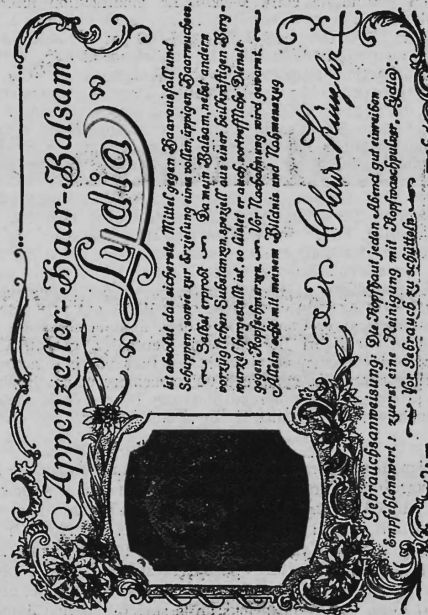 Appenzeller-Haar-Balsam
Lydia
ist absolut das sicherste Mittel gegen Haarausfall und
Schuppen, sowie zur Erzielung eines vollen, üppigen Haarwuchses.
Selbst erprobt Da mein Balsam, nebst andern
vorzüglichen Substanzen, speziell aus einer heilkräftigen Berg-
wurzel hergestellt ist, so leistet er auch vortreffliche Dienste
gegen Kopfschmerzen. Vor Nachahmung wird gewarnt.
Allein echt mit meinem Bildnis und Nahmenszug
Gebrauchsanweisung: Die Kopfhaut jeden Abend gut einreiben
Empfehlenswert: zuerst eine Reinigung mit Kopfwaschpulver „Lydia":
Vor Gebrauch zu schütteln